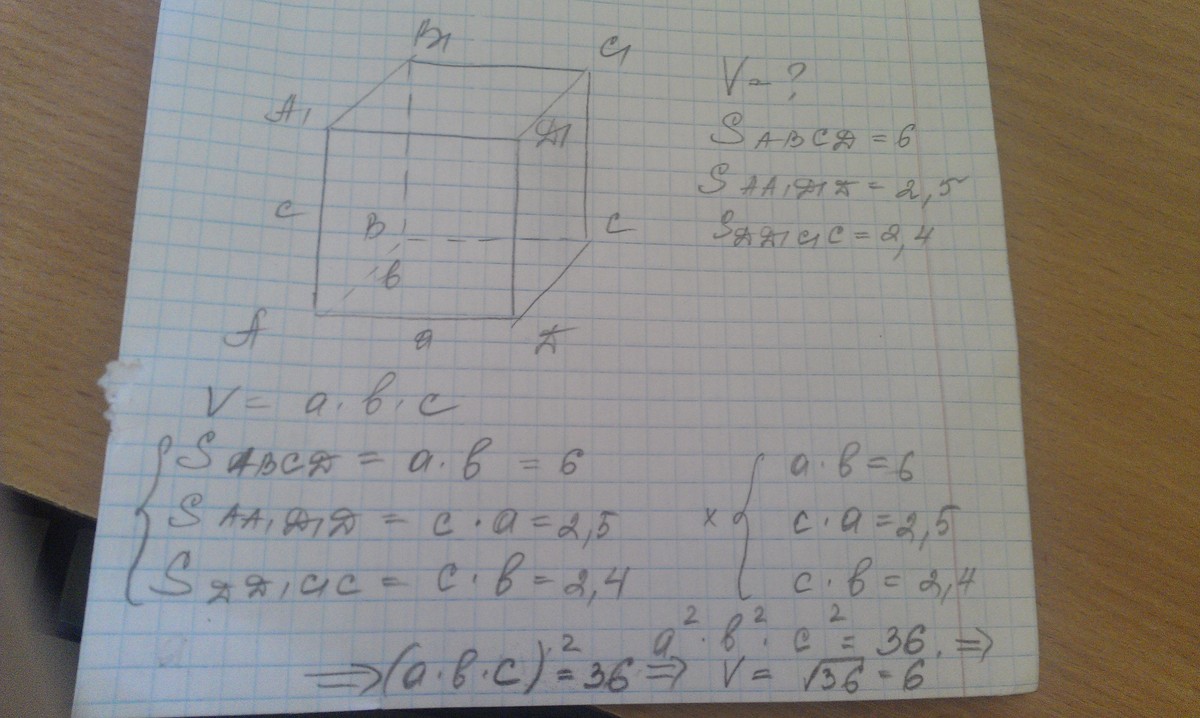 B₁
C₁
A₁
Д₁
c
B
C
в
A
a
Д
V = ?
S ABCД = 6
S AA₁Д₁Д = 2,5
S ДД₁C₁C = 2,4
V = a · в · c
S ABCД = a · в = 6
S AA₁Д₁Д = c · a = 2,5
S ДД₁C₁C = c · в = 2,4
× { a · в = 6
c · a = 2,5
c · в = 2,4
a² · в² · c² = 36 ⇒
⇒ (a · в · c)² = 36 ⇒ V = √36 = 6